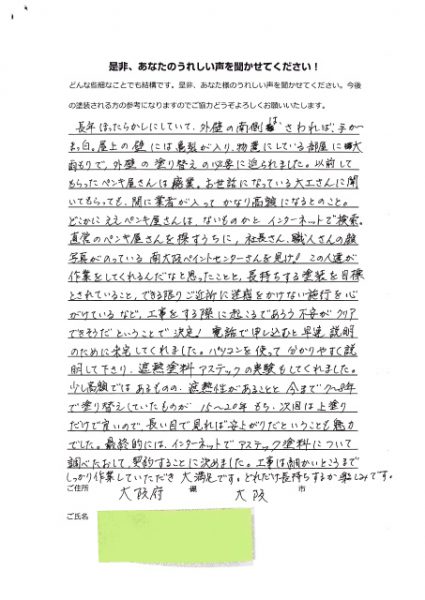 是非、あなたのうれしい声を聞かせてください！
どんな些細なことでも結構です。是非、あなた様のうれしい声を聞かせてください。今後
の塗装される方の参考になりますのでご協力どうぞよろしくお願いいたします。
長年ほったらかしにしていて、外壁の南側はさわれば、手が
まっ白。屋上の壁には亀裂が入り、物置にしている部屋に大
雨もりで、外壁の塗り替えの必要に迫られました。以前して
もらったペンキ屋さんは廃業。お世話になっている大工さんに聞
いてもらっても、間に業者が入って かなり高額になるとのこと。
どこかにええペンキ屋さんは、ないものかと インターネットで検索。
直営のペンキ屋さんを探すうちに、社長さん、職人さんの顔
写真がのっている 南大阪ペイントセンターさんを見け! この人達が
作業をしてくれるんだなと思ったことと、長持ちする塗装を目標
とされていること、できる限りご近所に迷惑をかけない施行を心
がけているなど、工事をする際に起こるであろう 不安がクリア
できそうだということで 決定! 電話で申し込むと早速 説明
のために来宅してくれました。パソコンを使って 分かりやすく説
明して下さり、遮熱塗料 アステックの実験もしてくれました。
少し高額では あるものの、遮熱性があることと 今まで7〜8年
で塗り替えしていたものが 15〜20年 もち、次回は上塗り
だけで良いので、長い目で見れば安上がりだということも魅力
でした。最終的には、インターネットでアステック塗料について
調べたおして、契約することに決めました。工事は細かいところまで
しっかり作業していただき 大満足です。どれだけ長持ちするか楽しみです。
ご住所 大阪府 県 大阪 市
ご氏名